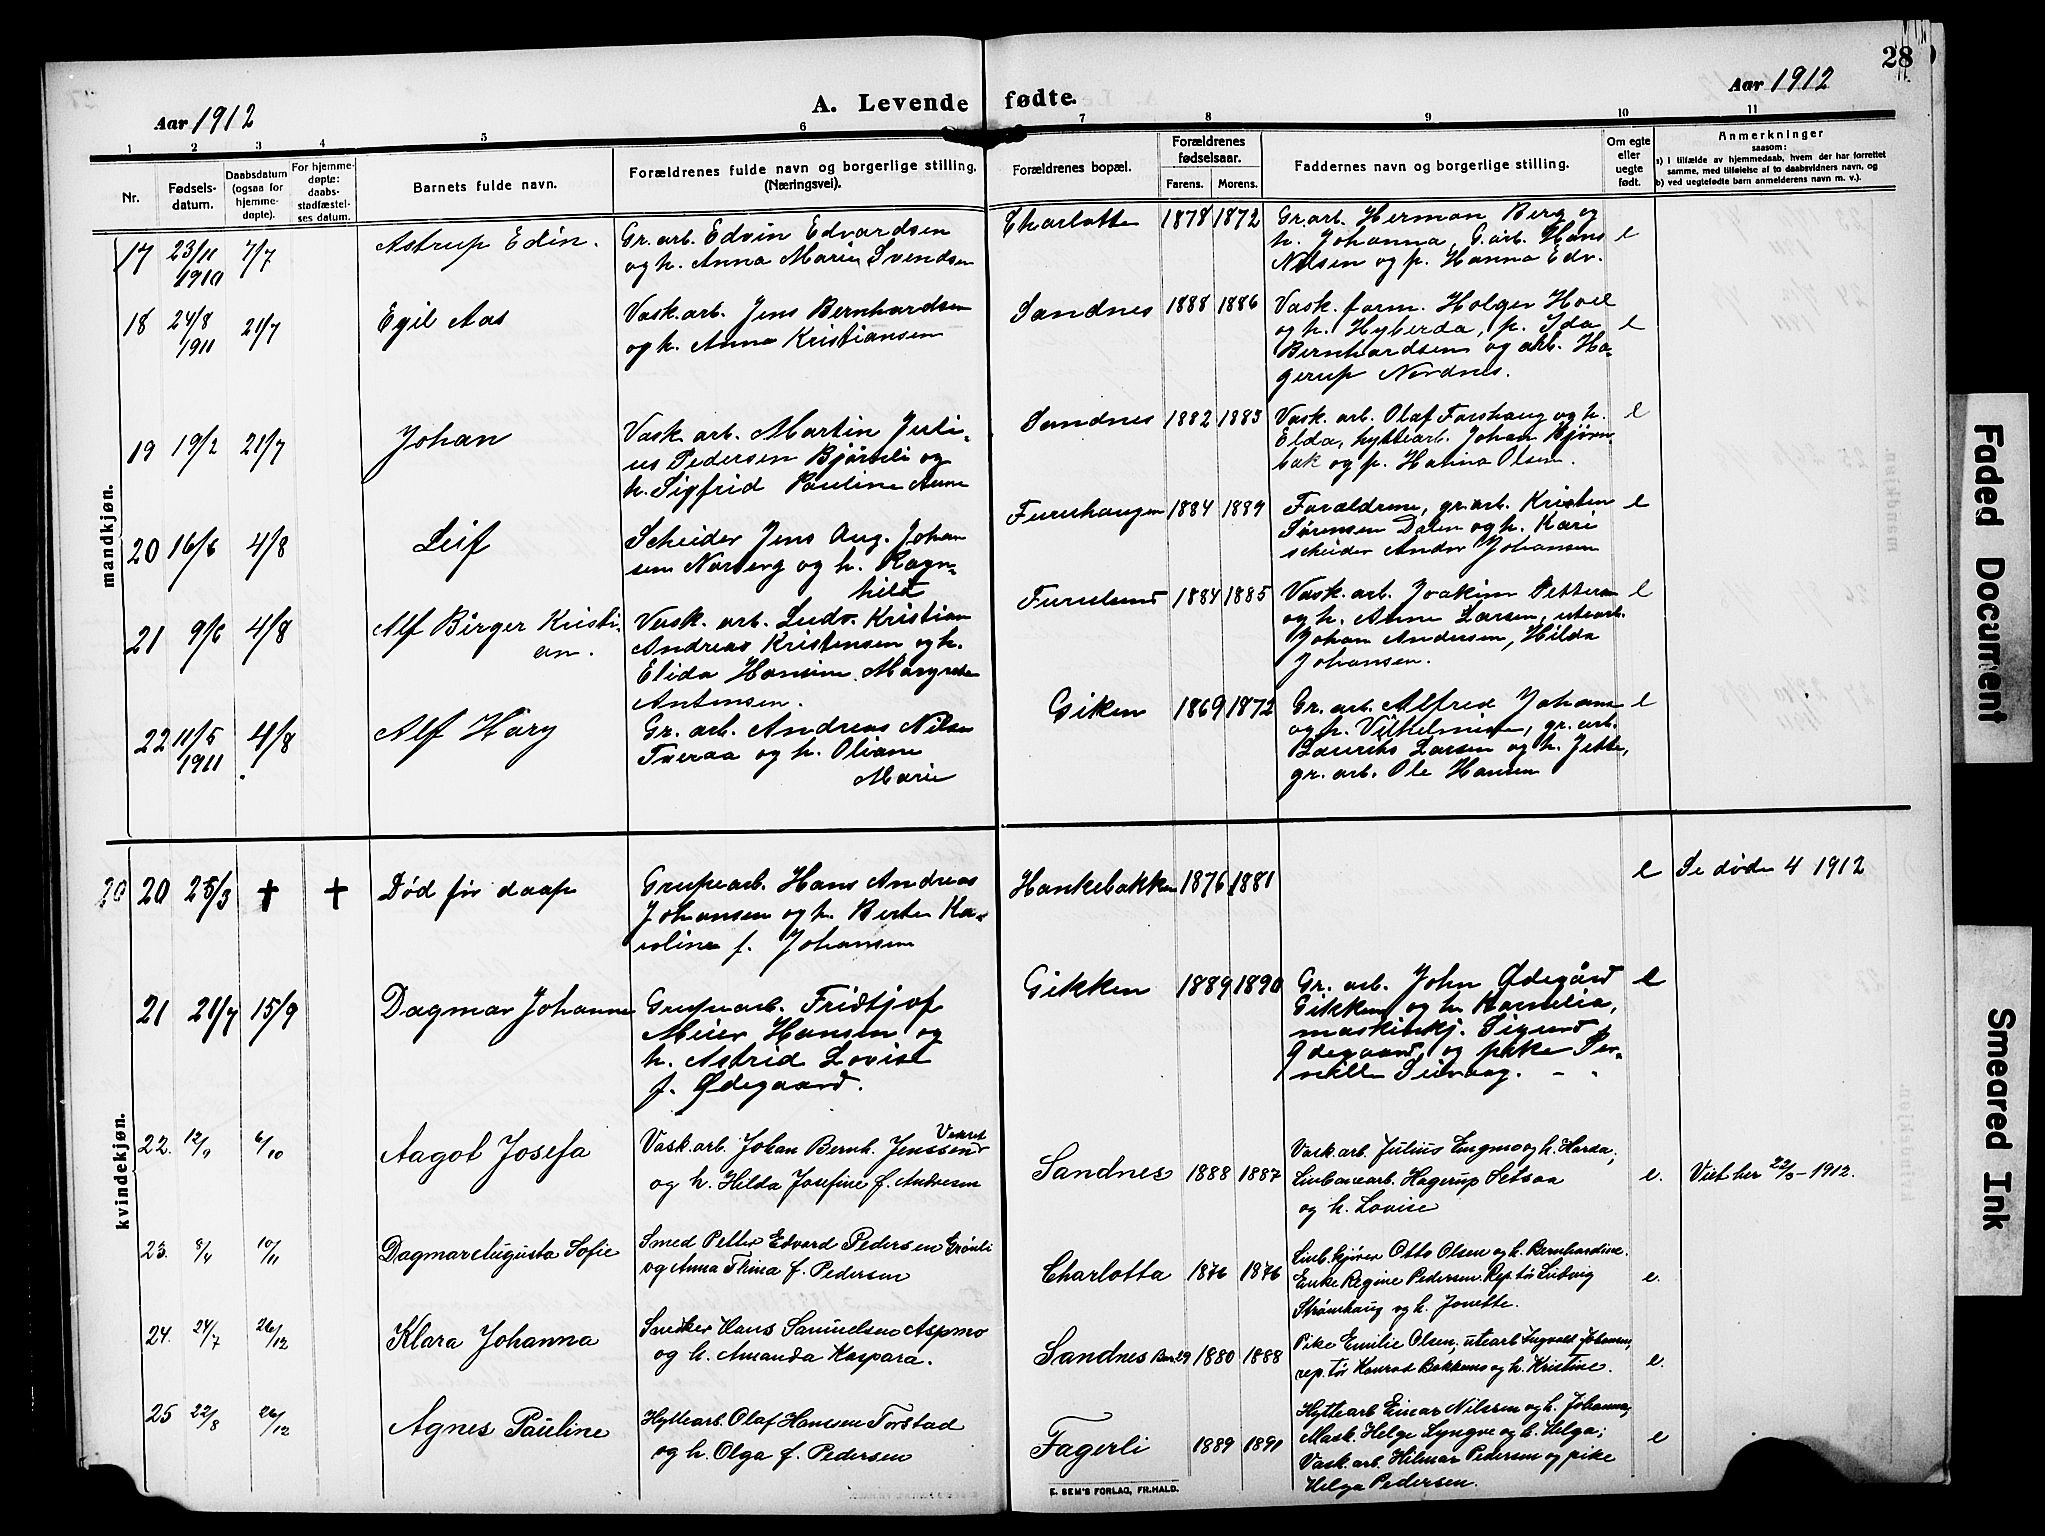 28
Aar 1912
A. Levende fødte.
Aar 1912
1 2 3 4 5 6 7 8 9 10 11
Nr.
Fødsels-
datum.
Daabsdatum
(ogsaa for
hjemme-
døpte).
For hjemme-
døpte:
daabs-
stadfæstel-
ses datum.
Barnets fulde navn.
Forældrenes fulde navn og borgerlige stilling.
(Næringsvei).
Forældrenes bopæl.
Forældrenes
fødselsaar.
Farens. Morens.
Faddernes navn og borgerlige stilling.
Om egte
eller
uegte
født.
Anmerkninger
saasom:
a) I tilfælde av hjemmedaab, hvem der har forrettet
samme, med tilføielse af to daabsvidners navn, og
b) ved uegtefødte børn anmelderens navn m. v.).
mandkjøn.
17 23/11 1910 7/7 Astrup Edin.
Gr. arb. Edvin Edvardsen
og h. Anna Marie Svendsen
Charlotta 1878 1872
Gr. arb. Herman Berg og
h. Johanna, G. arb. Hans
Nilsen og p. Hanna Edv.
e
18 24/8 1911 21/7 Egil Aas
Vask. arb. Jens Bernhardsen
og h. Anna Kristiansen
Sandnes 1888 1886
Vask. form. Holger Hoel
og h. Hyberda, p. Ida
Bernhardsen og arb. Ha-
gerup Nordnes.
e
19 19/2 21/7 Johan
Vask arb. Martin Juli-
us Pedersen Bjørnli og
h. Sigfrid Pauline Aune
Sandnes 1882 1883
Vask. arb. Olaf Forshaug og h.
Elda, hyttearb. Johan Bjørn
bak og p. Halina Olsen.
e
20 16/6 4/8 Leif
Scheider Jens Aug. Johan
sen Norberg og h. Ragn-
hild
Furuhaugen 1884 1889
Forældrene, gr. arb. Kristen
Sørensen Dalen og h. Kari
scheider Andor Johansen
e
21 9/6 4/8 Alf Birger Kristi-
an.
Vask. arb. Ludv. Kristian
Andreas Kristensen og h.
Elida Hansine Margrethe
Antonsen.
Furulund 1884 1885
Vask. arb. Joakim Pettersen
og h. Anne Larsen, utearb.
Johan Andersen, Hilda
Johansen.
e
22 11/5 1911 4/8 Alf Hary
Gr. arb. Andreas Nilsen
Tveraa og h. Oliane
Marie
Giken 1869 1872
Gr. arb. Alfred Johansen
og h. Vilhelmine, gr. arb.
Laurits Larsen og h. Jette,
gr. arb. Ole Hansen
e
kvindekjøn.
20 20 25/3 † † Død før daap
Grupearb. Hans Andreas
Johansen og h. Berte Ka-
roline f. Johansen
Hankebakken 1876 1881
e Se døde 4 1912
21 21/7 15/9 Dagmar Johanne
Grupearb. Fridtjof
Meier Hansen og
h. Astrid Lovise
f. Ødegaard.
Gikken 1889 1890
Gr. arb. John Ødegård
Gikken og h. Kornelia,
maskinkj. Sigurd
Ødegaard og pike Per-
nille Seivaag.
e
22. 12/9 6/10 Aagot Josefa
Vask. arb. Johan Bernh. Jenssen
og h. Hilda Josefine f. Andresen
Sandnes 1888 1887
Vask. arb. Julius Engmo og h. Harda,
Linbanearb. Hagerup Setsaa
og h. Lovise
e. Viet her 22/5-1912.
23. 8/4 10/11 Dagmar Augusta Sofie
Smed Petter Edvard Pedersen Grønli
og Anna Thina f. Pedersen
Charlotta 1876 1876
Linb. kjører Otto Olsen og h. Bernhardine.
Enke Regine Pedersen. Rep. tør Ludvig
Strømhaug og h. Jonette.
e.
24. 24/7 26/12 Klara Johanna
Snedker Hans Samuelsen Aspmo
og h. Amanda Kaspara.
Sandnes 1880 1888
Pike Emilie Olsen, utearb Ingvald Johansen,
rep. tør Konrad Bakkemo og h. Kristine.
e.
25 22/8 26/12 Agnes Pauline
Hyttearb. Olaf Hansen Torstad
og h. Olga f. Pedersen
Fagerli 1889 1891
Hyttearb Einar Nilssen og h. Johanna,
Mask. Helge Lyngve og h. Helga;
Vask. arb. Hilmar Pedersen og pike
Helga Pedersen.
e
E. SEM'S FORLAG, FR.HALD.
Faded Document
Smeared Ink